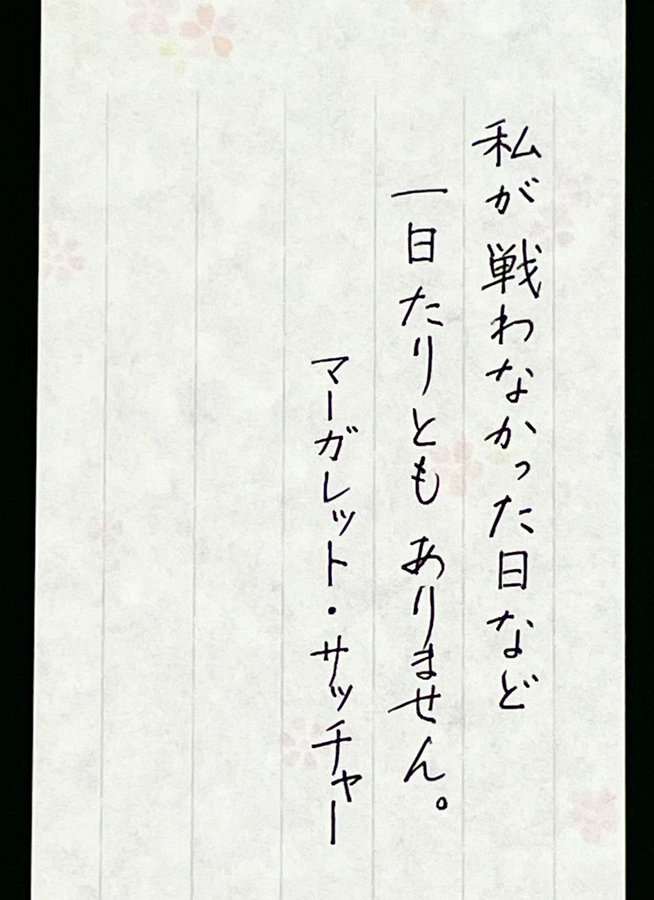 私が戦わなかった日など
一日たりともありません。
マーガレット・サッチャー